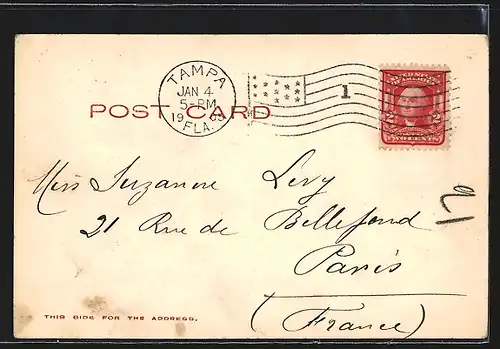 TAMPA
JAN 4
5-PM
19
FLA.
1
POST CARD
TWO CENTS
Miss Suzanne Levy
21 Rue de Bellefond
Paris
(France)
THIS SIDE FOR THE ADDRESS.